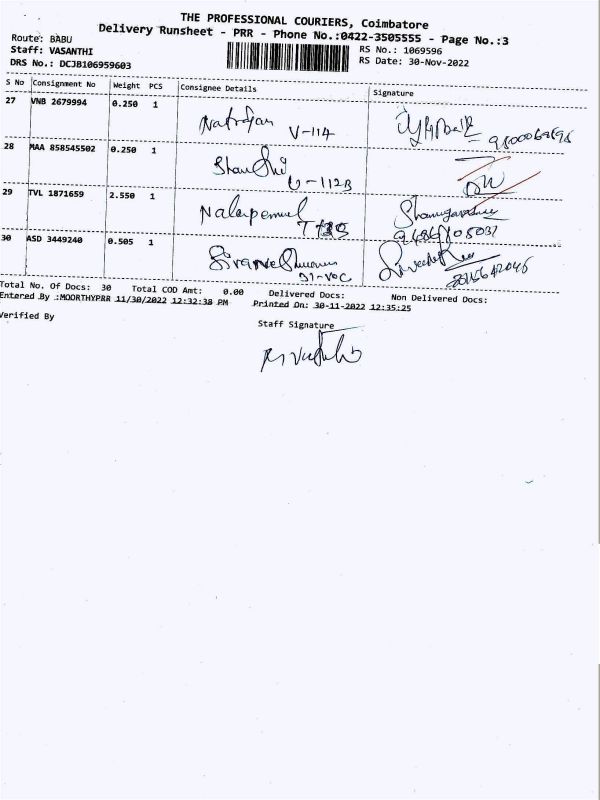 THE PROFESSIONAL COURIERS, Coimbatore
Delivery Runsheet - PRR - Phone No.:0422-3505555 - Page No.:3
Route: BABU
Staff: VASANTHI
DRS No.: DCJB106959603
RS No.: 1069596
RS Date: 30-Nov-2022
S No Consignment No Weight PCS Consignee Details Signature
27 VNB 2679994 0.250 1
V-114
28 MAA 858545502 0.250 1
U-112B
29 TVL 1871659 2.550 1
30 ASD 3449240 0.505 1
Total No. Of Docs: 30 Total COD Amt: 0.00 Delivered Docs: Non Delivered Docs:
Entered By :MOORTHYPRR 11/30/2022 12:32:38 PM Printed On: 30-11-2022 12:35:25
Verified By
Staff Signature